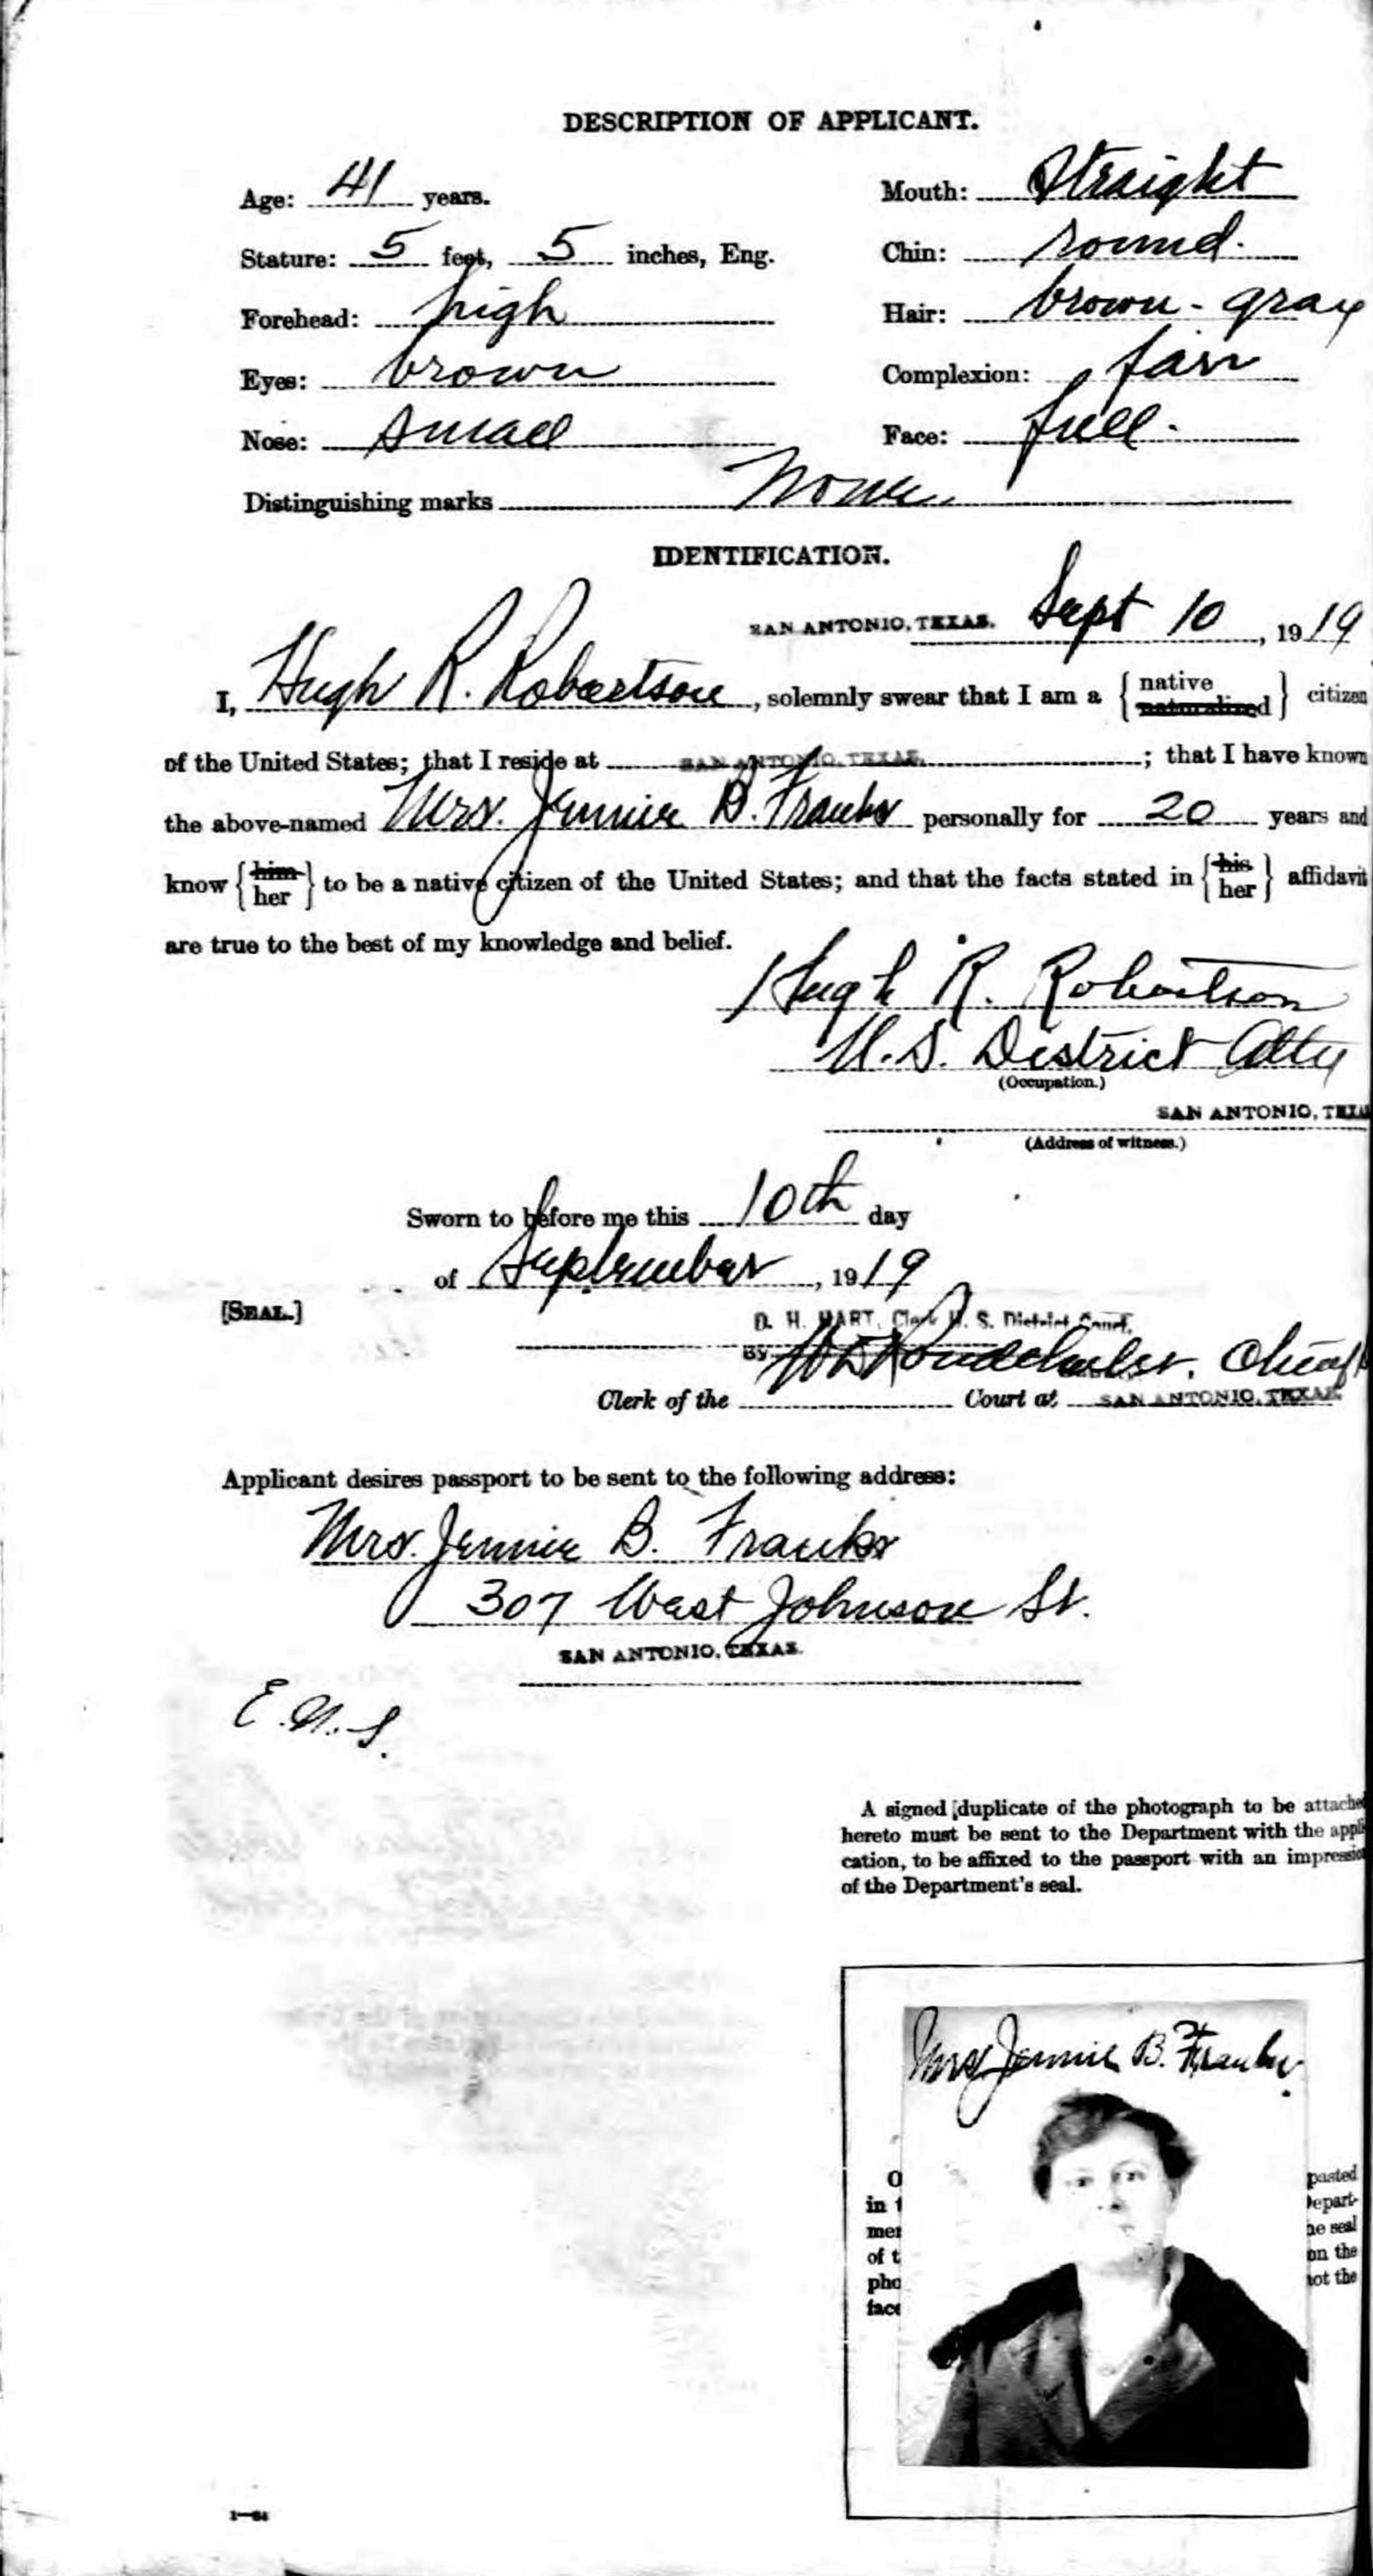 DESCRIPTION OF APPLICANT.
Age: 41 years.
Mouth: Straight
Stature: 5 feet, 5 inches, Eng.
Chin: round.
Forehead: high
Hair: brown - gray
Eyes: brown
Complexion: fair
Nose: small
Face: full.
Distinguishing marks None
IDENTIFICATION.
SAN ANTONIO, TEXAS. Sept 10, 1919
I, Hugh R. Robertson, solemnly swear that I am a { native naturalized } citizen
of the United States; that I reside at SAN ANTONIO, TEXAS. ; that I have known
the above-named Mrs. Jennie B. Franks personally for 20 years and
know { him her } to be a native citizen of the United States; and that the facts stated in { his her } affidavit
are true to the best of my knowledge and belief.
Hugh R. Robertson
U.S. District Atty
(Occupation.)
SAN ANTONIO, TEXAS
(Address of witness.)
Sworn to before me this 10th day
of September, 1919
[SEAL.]
D. H. HART, Clerk U. S. District Court,
By Chief
Clerk of the Court at SAN ANTONIO, TEXAS.
Applicant desires passport to be sent to the following address:
Mrs. Jennie B. Franks
307 West Johnson St.
SAN ANTONIO, TEXAS.
A signed duplicate of the photograph to be attached
hereto must be sent to the Department with the appli-
cation, to be affixed to the passport with an impression
of the Department's seal.
Mrs Jennie B. Franks.
O pasted
in t Depart-
men he seal
of t on the
pho not the
face